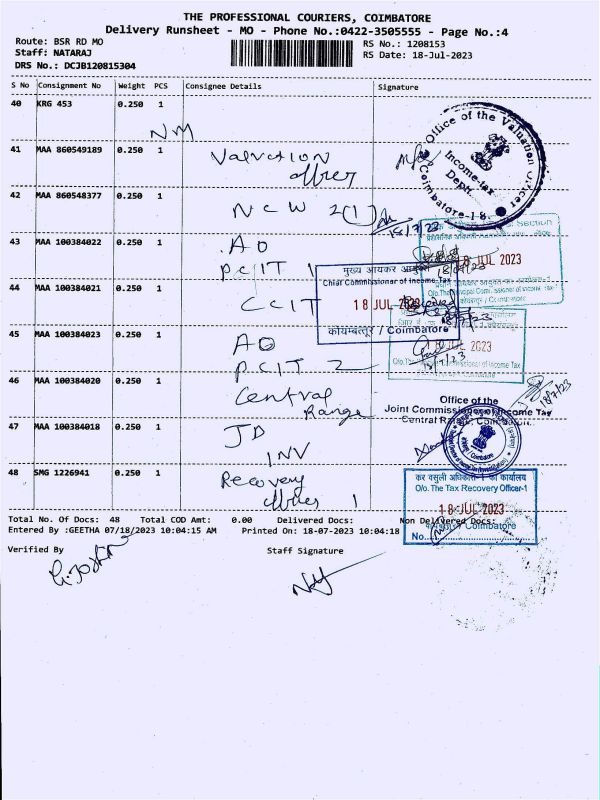 THE PROFESSIONAL COURIERS, COIMBATORE
Delivery Runsheet - MO - Phone No.:0422-3505555 - Page No.:4
Route: BSR RD MO
RS No.: 1208153
Staff: NATARAJ
RS Date: 18-Jul-2023
DRS No.: DCJB120815304
S No Consignment No Weight PCS Consignee Details Signature
40 KRG 453 0.250 1
NM
41 MAA 860549189 0.250 1 Valvation
officer
42 MAA 860548377 0.250 1 NCW 2(1)
18/7/23
43 MAA 100384022 0.250 1 AO
PCIT 1
44 MAA 100384021 0.250 1 CCIT
45 MAA 100384023 0.250 1 AO
PCIT 2
46 MAA 100384020 0.250 1 Central
Range
47 MAA 100384018 0.250 1 JD
INV
48 SMG 1226941 0.250 1 Recovery
officer 1
Office of the Valuation Officer
Income-tax
Deptt.
Coimbatore-18
18 JUL 2023
मुख्य आयकर आयुक्त
Chief Commissioner of Income Tax
18 JUL 2023
कोयम्बत्तूर / Coimbatore
18 JUL 2023
18/7/23
Office of the
Joint Commissioner of Income Tax
Central Range, Coimbatore.
18/7/23
कर वसूली अधिकारी-1 का कार्यालय
O/o. The Tax Recovery Officer-1
18 JUL 2023
Coimbatore
No.
Total No. Of Docs: 48 Total COD Amt: 0.00 Delivered Docs: Non Delivered Docs:
Entered By :GEETHA 07/18/2023 10:04:15 AM Printed On: 18-07-2023 10:04:18
Verified By Staff Signature